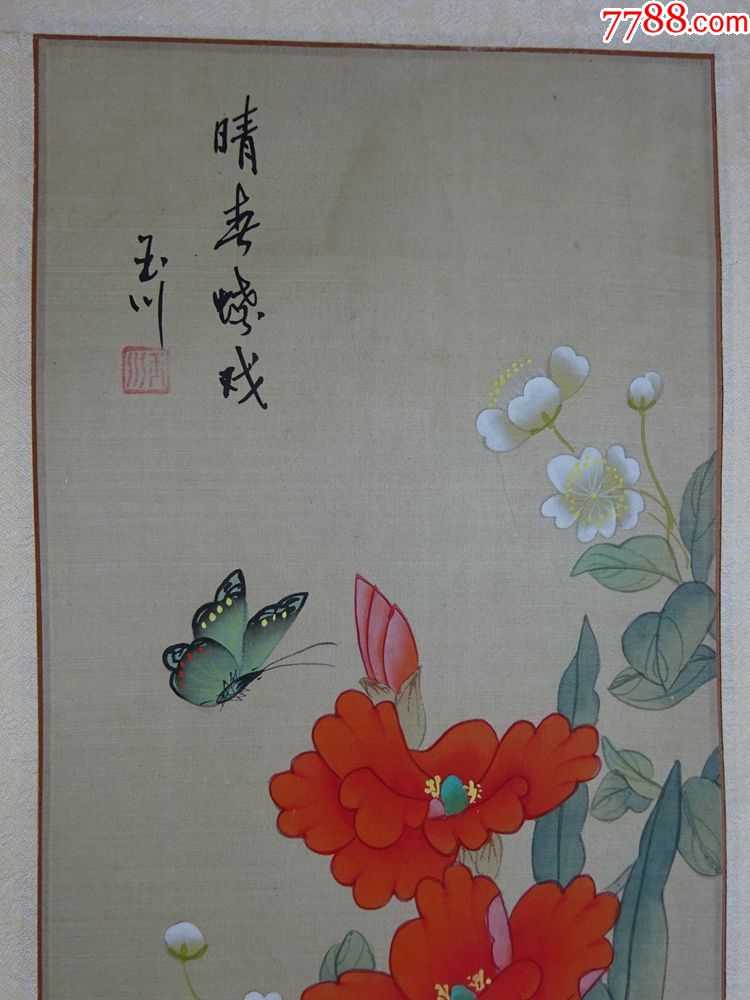 7788.com
晴春蝶戏
玉川
玉川